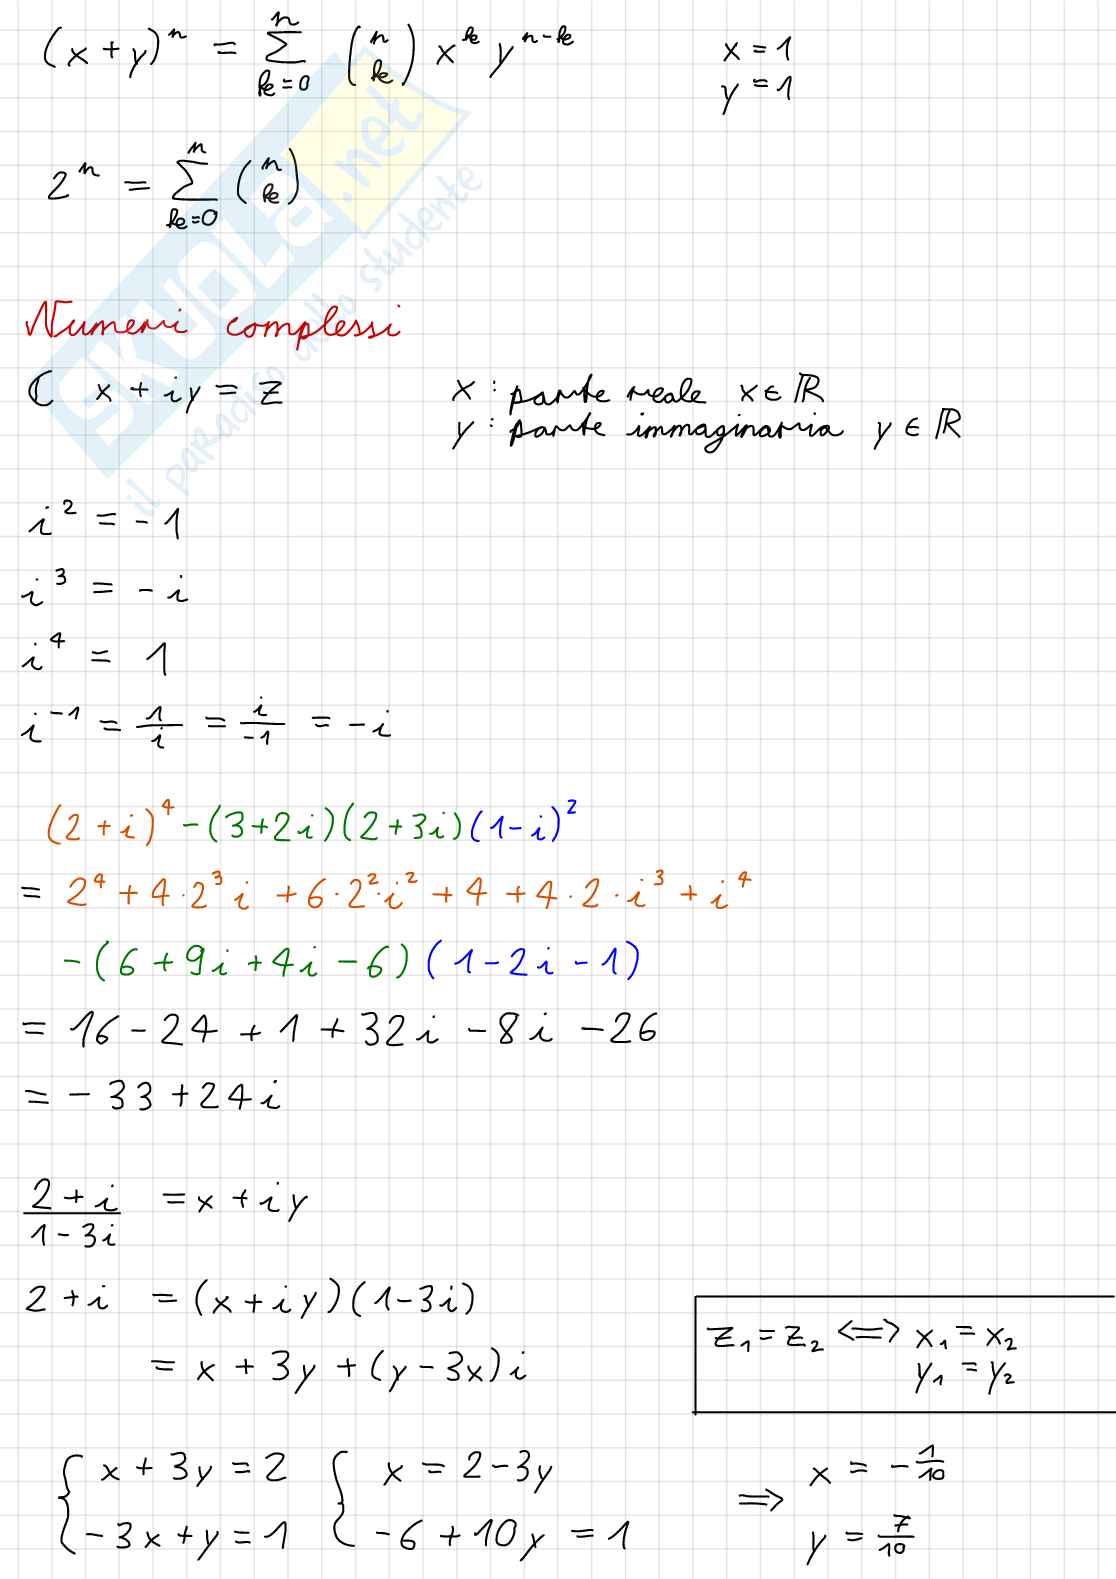 (x+y)^n = \sum_{k=0}^{n} \binom{n}{k} x^k y^{n-k}    x = 1
y = 1
2^n = \sum_{k=0}^{n} \binom{n}{k}
SKUOLA.net
il paradiso dello studente
Numeri complessi
ℂ x + iy = z    x : parte reale x ∈ ℝ
y : parte immaginaria y ∈ ℝ
i^2 = -1
i^3 = -i
i^4 = 1
i^{-1} = \frac{1}{i} = \frac{i}{-1} = -i
(2+i)^4 - (3+2i)(2+3i)(1-i)^2
= 2^4 + 4·2^3 i + 6·2^2·i^2 + 4 + 4·2·i^3 + i^4
-(6+9i+4i-6)(1-2i-1)
= 16 - 24 + 1 + 32i - 8i - 26
= -33 + 24i
\frac{2+i}{1-3i} = x + iy
2+i = (x+iy)(1-3i)
= x + 3y + (y-3x)i
z_1 = z_2 <=> x_1 = x_2
y_1 = y_2
{ x + 3y = 2    { x = 2-3y    => x = -\frac{1}{10}
-3x + y = 1    -6 + 10y = 1    y = \frac{7}{10}